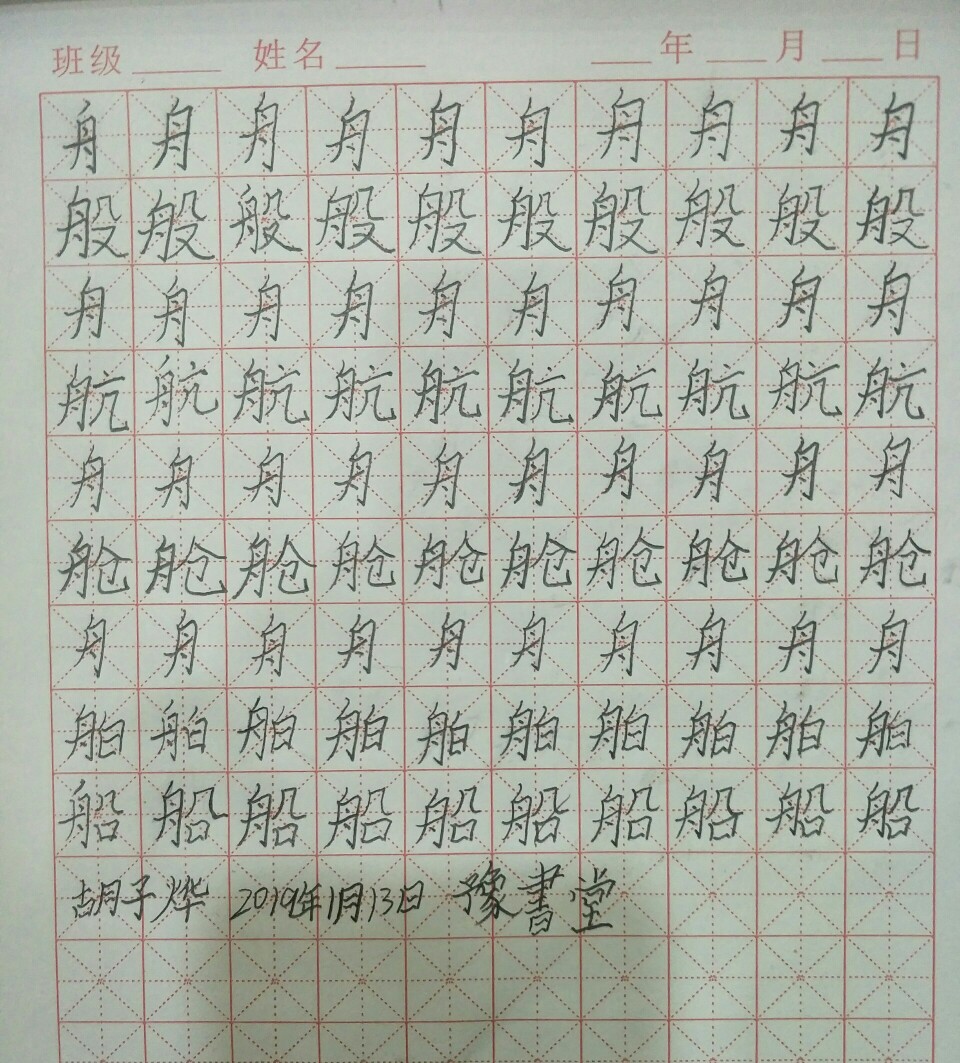 班级 姓名 年 月 日
舟舟舟舟舟舟舟舟舟舟
般般般般般般般般般般
舟舟舟舟舟舟舟舟舟舟
航航航航航航航航航航
舟舟舟舟舟舟舟舟舟舟
舱舱舱舱舱舱舱舱舱舱
舟舟舟舟舟舟舟舟舟舟
舶舶舶舶舶舶舶舶舶舶
船船船船船船船船船船
胡子烨 2019年1月13日 豫書堂